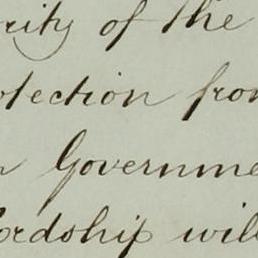 rity of the
otection from
n Governme
ordship will